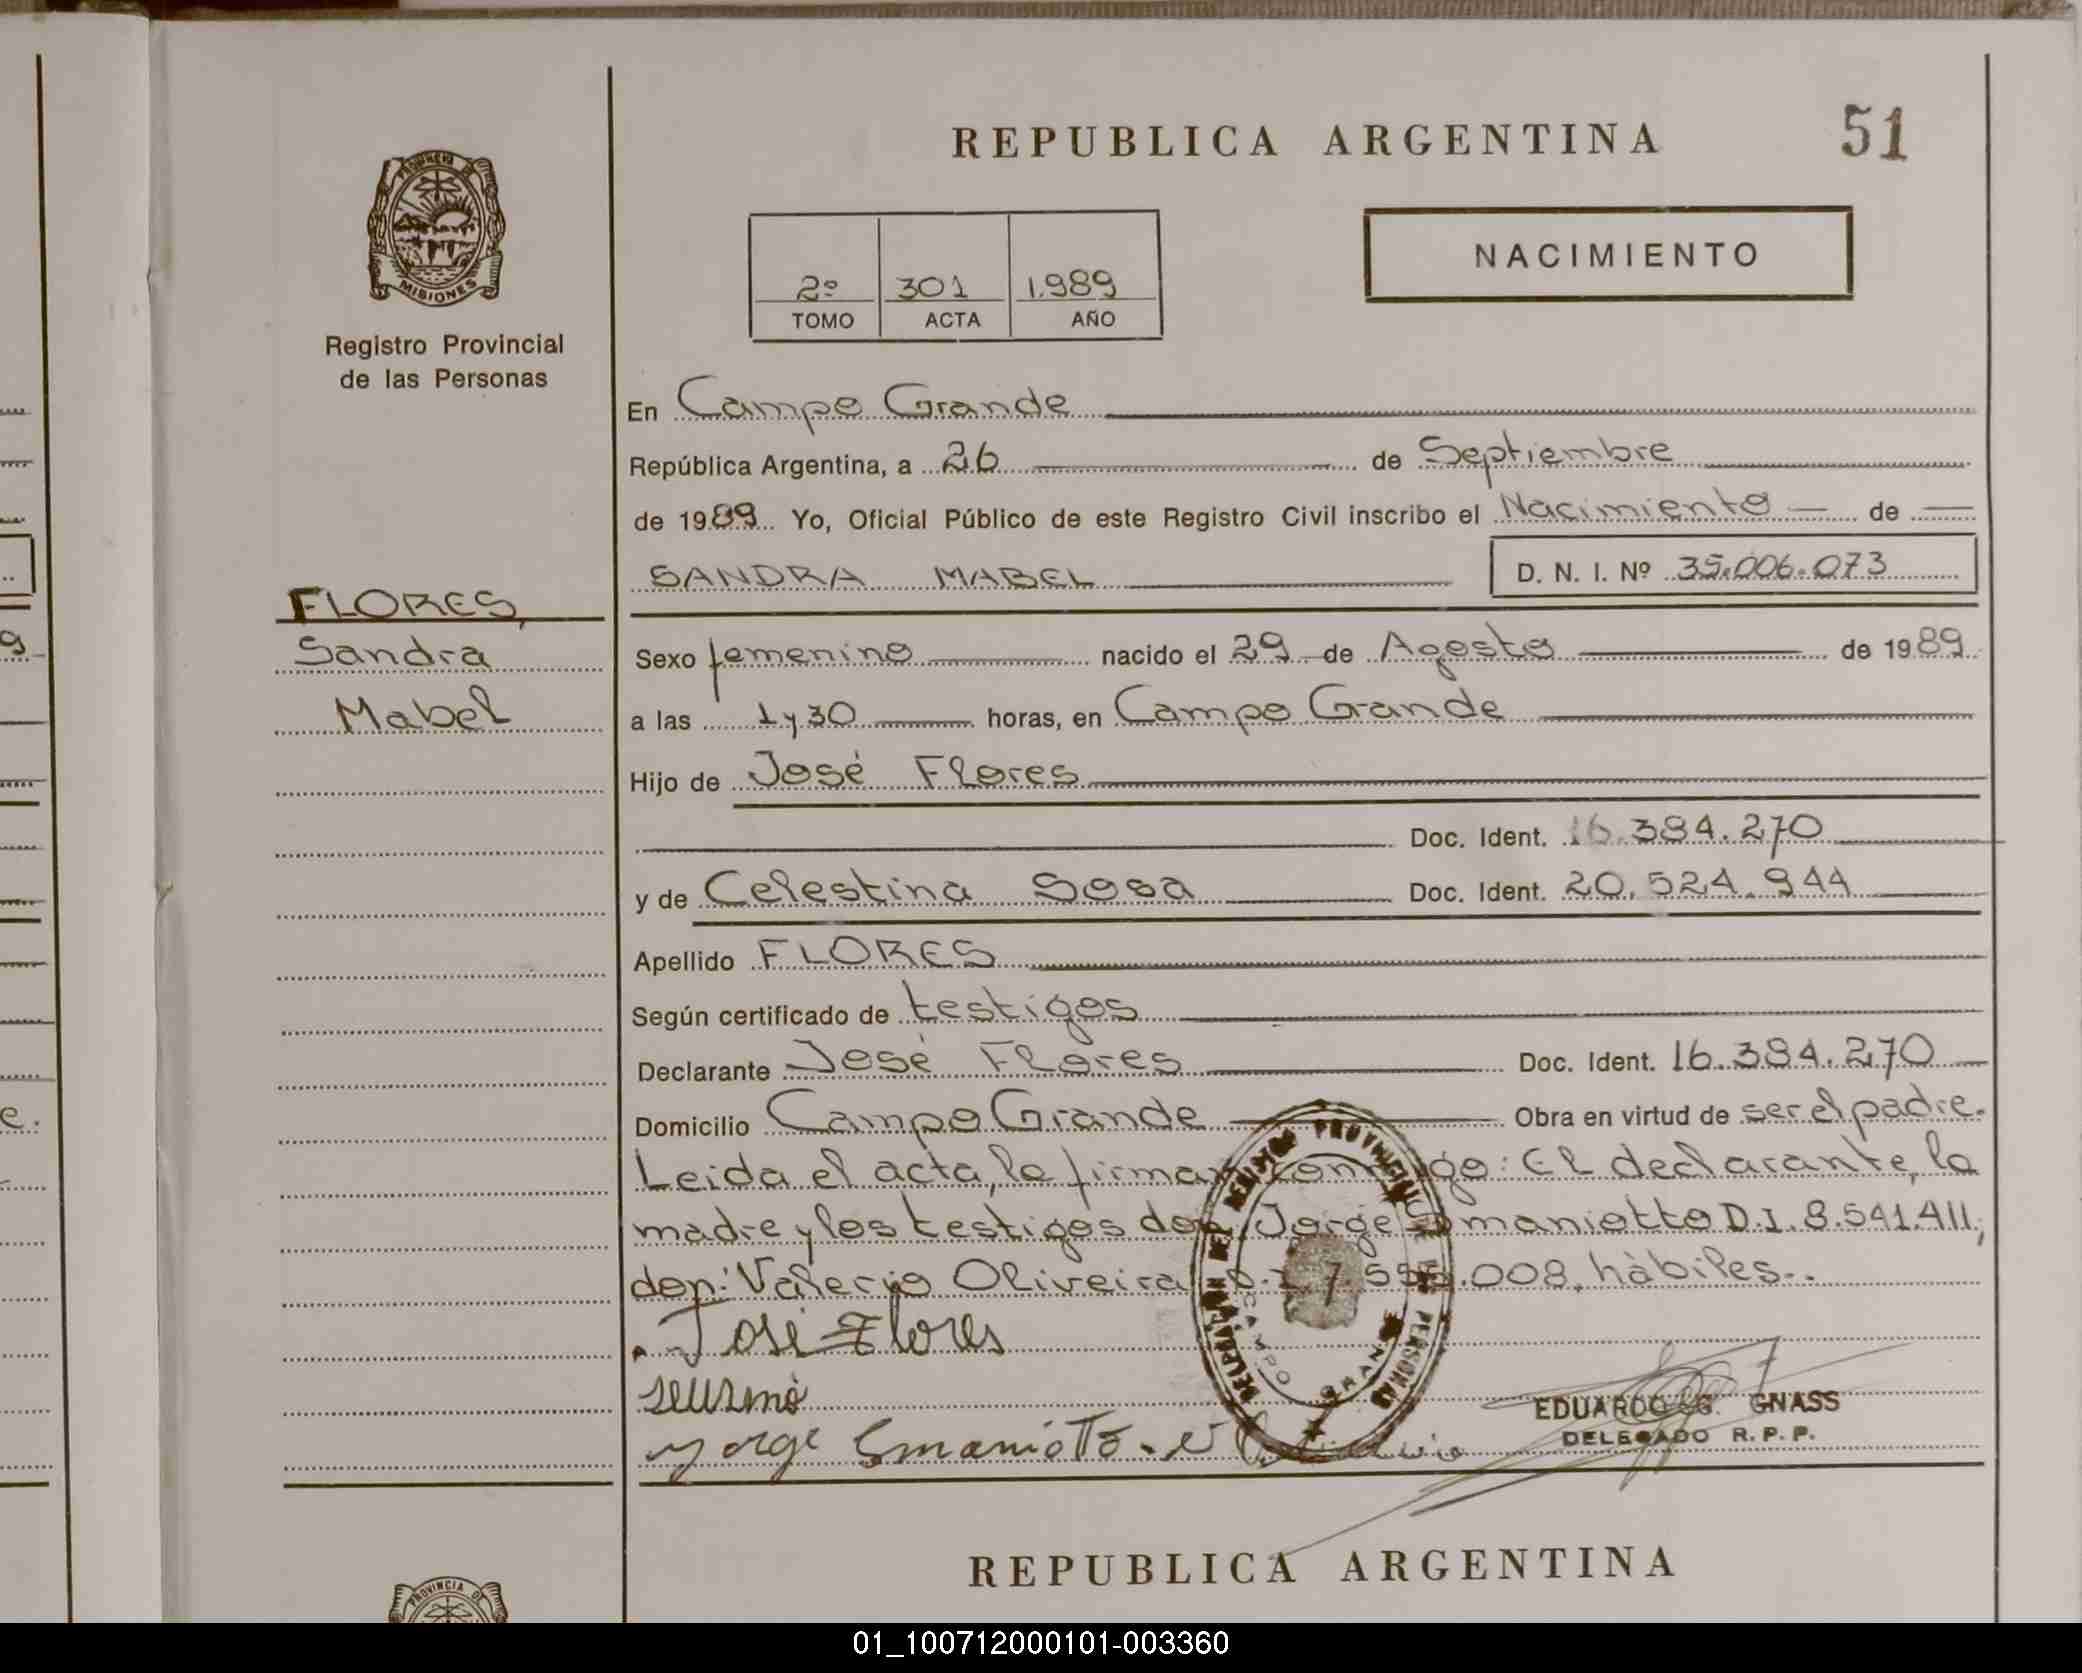 REPUBLICA ARGENTINA
51
PROVINCIA DE
MISIONES
Registro Provincial
de las Personas
2º 301 1.989
TOMO ACTA AÑO
NACIMIENTO
En Campo Grande
República Argentina, a 26 de Septiembre
de 1989 Yo, Oficial Público de este Registro Civil inscribo el Nacimiento de
SANDRA MABEL
D. N. I. Nº 35.006.073
FLORES,
Sandra
Mabel
Sexo femenino nacido el 29 de Agosto de 1989
a las 1 y 30 horas, en Campo Grande
Hijo de José Flores
Doc. Ident. 16.384.270
y de Celestina Sosa Doc. Ident. 20.524.944
Apellido FLORES
Según certificado de testigos
Declarante José Flores Doc. Ident. 16.384.270
Domicilio Campo Grande Obra en virtud de ser el padre.
Leida el acta, la firman conmigo: El declarante, la
madre y los testigos don: Jorge Smaniotto D.I. 8.541.411,
don: Valerio Oliveira .008, hàbiles.
José Flores
Jorge Smanioto
DELEGACION DEL REGISTRO PROVINCIAL DE LAS PERSONAS
CAMPO GRANDE
EDUARDO G. GNASS
DELEGADO R. P. P.
REPUBLICA ARGENTINA
PROVINCIA DE
01_100712000101-003360